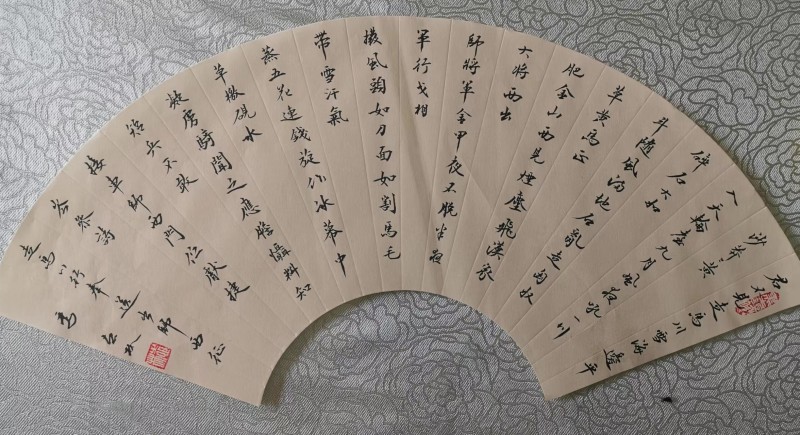 君不見走馬川雪海邊平
沙莽々黃
入天輪臺九月風夜吼一川
碎石大如
斗隨風滿地石亂走匈奴
草黃馬正
肥金山西見煙塵飛漢家
大將西出
師將軍金甲夜不脫半夜
軍行戈相
撥風頭如刀面如割馬毛
帶雪汗氣
蒸五花連錢旋作冰幕中
草檄硯水
凝虜騎聞之應膽懾料知
短兵不敢
接車師西門佇獻捷
岑參詩
走馬川行奉送出師西征